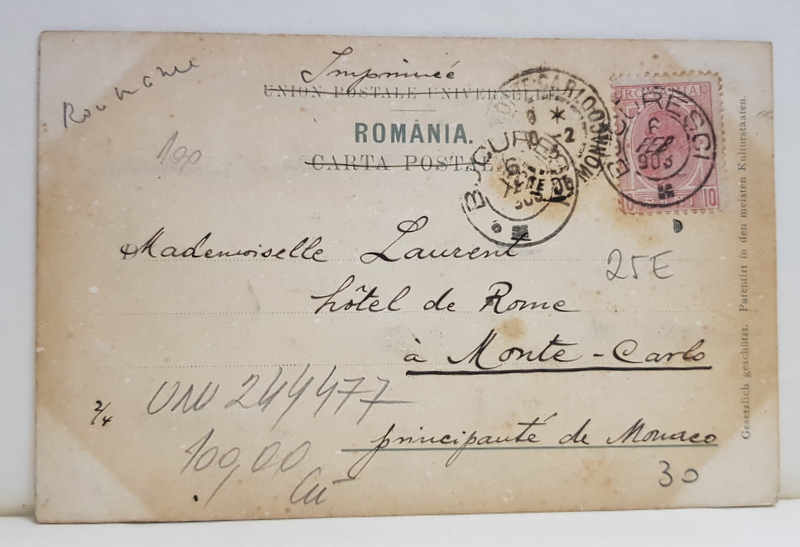 Roumanie
Imprimée
UNION POSTALE UNIVERSELLE
ROMÂNIA.
CARTA POSTALA
100
MONTE-CARLO
MONACO
BUCURESCI
6
903
BUCURESCI
6
FEB
903
10
Mademoiselle Laurent
hôtel de Rome
à Monte-Carlo
principauté de Monaco
25E
2/4
244477
100,00
30
Gesetzlich geschützt. Patentirt in den meisten Kulturstaaten.